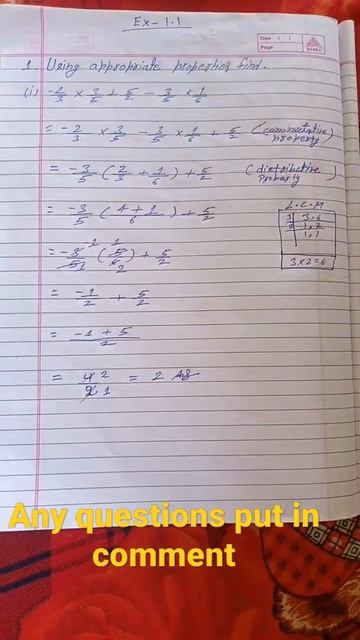 Ex-1.1
Date / /
Page
1. Using appropriate properties find.
(i) -2/3 × 3/5 + 5/2 - 3/5 × 1/6
= -2/3 × 3/5 - 3/5 × 1/6 + 5/2 (commutative property)
= -3/5 (2/3 + 1/6) + 5/2 (distributive property)
L.C.M
3 | 3,6
2 | 1,2
1,1
3×2=6
= -3/5 (4+1/6) + 5/2
= -3/5 (5/6) + 5/2
= -1/2 + 5/2
= -1+5/2
= 4/2 = 2 Ans
Any questions put in
comment